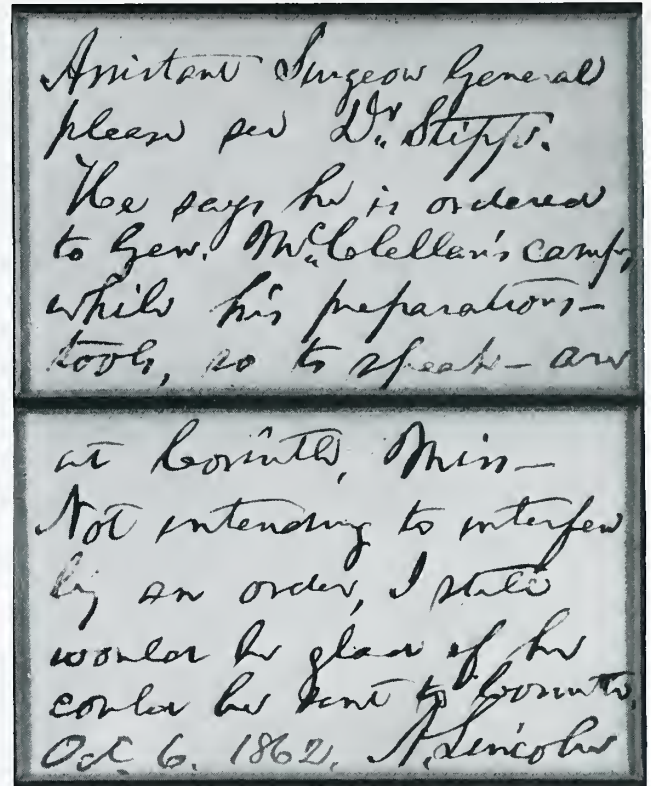 Assistant Surgeon General
please see Dr. Stipp.
He says he is ordered
to Gen. McClellan's camp,
while his preparations—
tools, so to speak— are
at Corinth, Miss—
Not intending to interfere
by an order, I still
would be glad if he
could be sent to Corinth.
Oct. 6. 1862. A. Lincoln